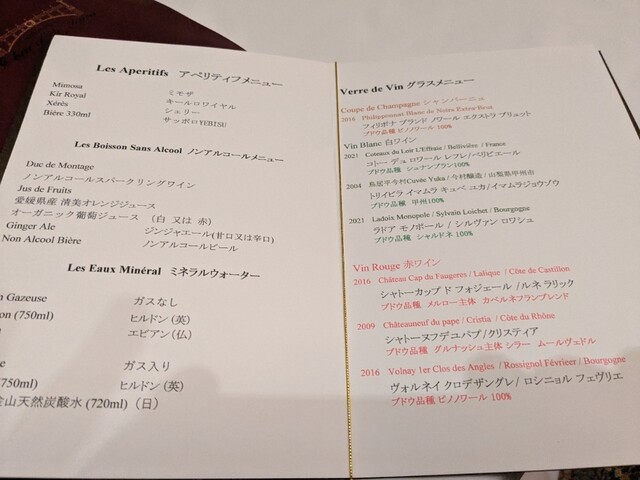 Les Aperitifs アペリティフメニュー
Mimosa ミモザ
Kir Royal キールロワイヤル
Xérès シェリー
Bière 330ml サッポロYEBISU
Les Boisson Sans Alcool ノンアルコールメニュー
Duc de Montage
ノンアルコールスパークリングワイン
Jus de Fruits
愛媛県産 清美オレンジジュース
オーガニック葡萄ジュース (白 又は 赤)
Ginger Ale ジンジャエール(甘口又は辛口)
Non Alcool Bière ノンアルコールビール
Les Eaux Minéral ミネラルウォーター
Gazeuse ガスなし
(750ml) ヒルドン(英)
エビアン(仏)
ガス入り
750ml) ヒルドン(英)
山天然炭酸水 (720ml) (日)
Verre de Vin グラスメニュー
Coupe de Champagne シャンパーニュ
2016 Philipponnat Blanc de Noirs Extra/Brut
フィリポナ ブランド ノワール エクストラ ブリュット
ブドウ品種 ピノノワール 100%
Vin Blanc 白ワイン
2021 Coteaux du Loir L'Effraie / Bellivière / France
コトー デュ ロワール レフレ/ベリビエール
ブドウ品種 シュナンブラン100%
2004 鳥居平今村Cuvée Yuka / 今村醸造 / 山梨県甲州市
トリイビラ イマムラ キュベ ユカ/イマムラジョウゾウ
ブドウ品種 甲州100%
2021 Ladoix Monopole / Sylvain Loichet / Bourgogne
ラドア モノポール / シルヴァン ロワシュ
ブドウ品種 シャルドネ 100%
Vin Rouge 赤ワイン
2016 Château Cap du Faugeres / Lalique / Côte de Castillon
シャトーカップ ド フォジェール /ルネ ラリック
ブドウ品種 メルロー主体 カベルネフランブレンド
2009 Châteauneuf du pape / Cristia / Côte du Rhône
シャトーヌフデユパプ/クリスティア
ブドウ品種 グルナッシュ主体 シラー ムールヴェドル
2016 Volnay 1er Clos des Angles / Rossignol Févrieer / Bourgogne
ヴォルネイ クロデザングレ/ ロシニョル フェヴリエ
ブドウ品種 ピノノワール 100%